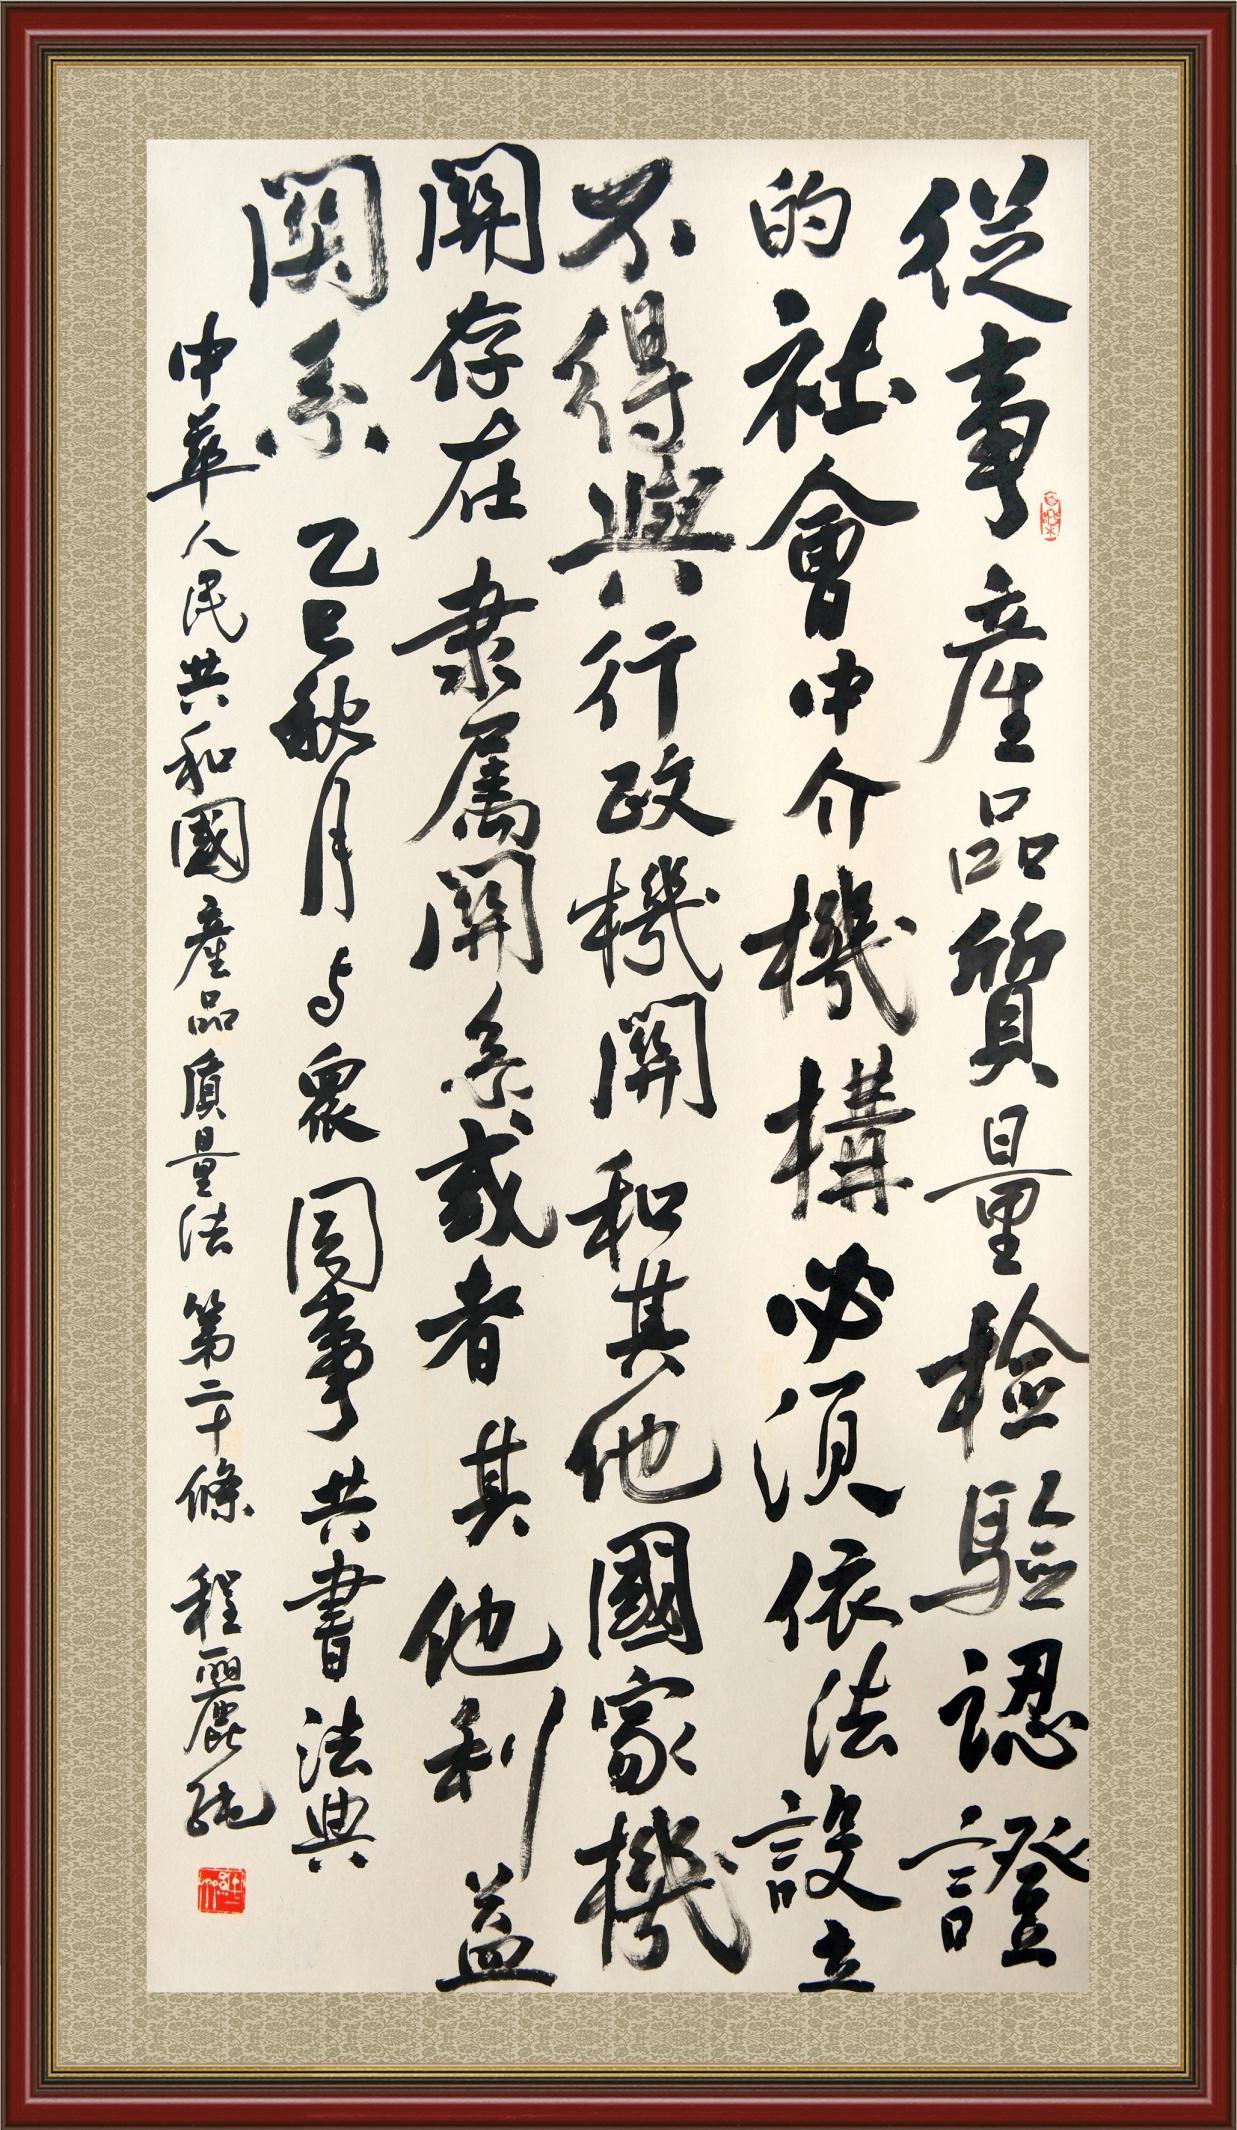 從事產品質量檢驗認證
的社會中介機構必須依法設立
不得與行政機關和其他國家機
關存在隶属關系或者其他利益
関系 乙巳秋月与眾同事共書法典
中華人民共和國產品质量法 第二十條 程麗